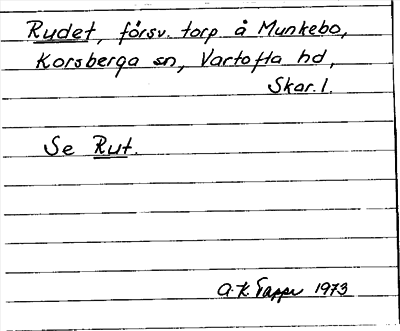 Rudet, försv. torp å Munkebo,
Korsberga sn, Vartofta hd,
Skar. l.
Se Rut.
A.K. Tapper 1973